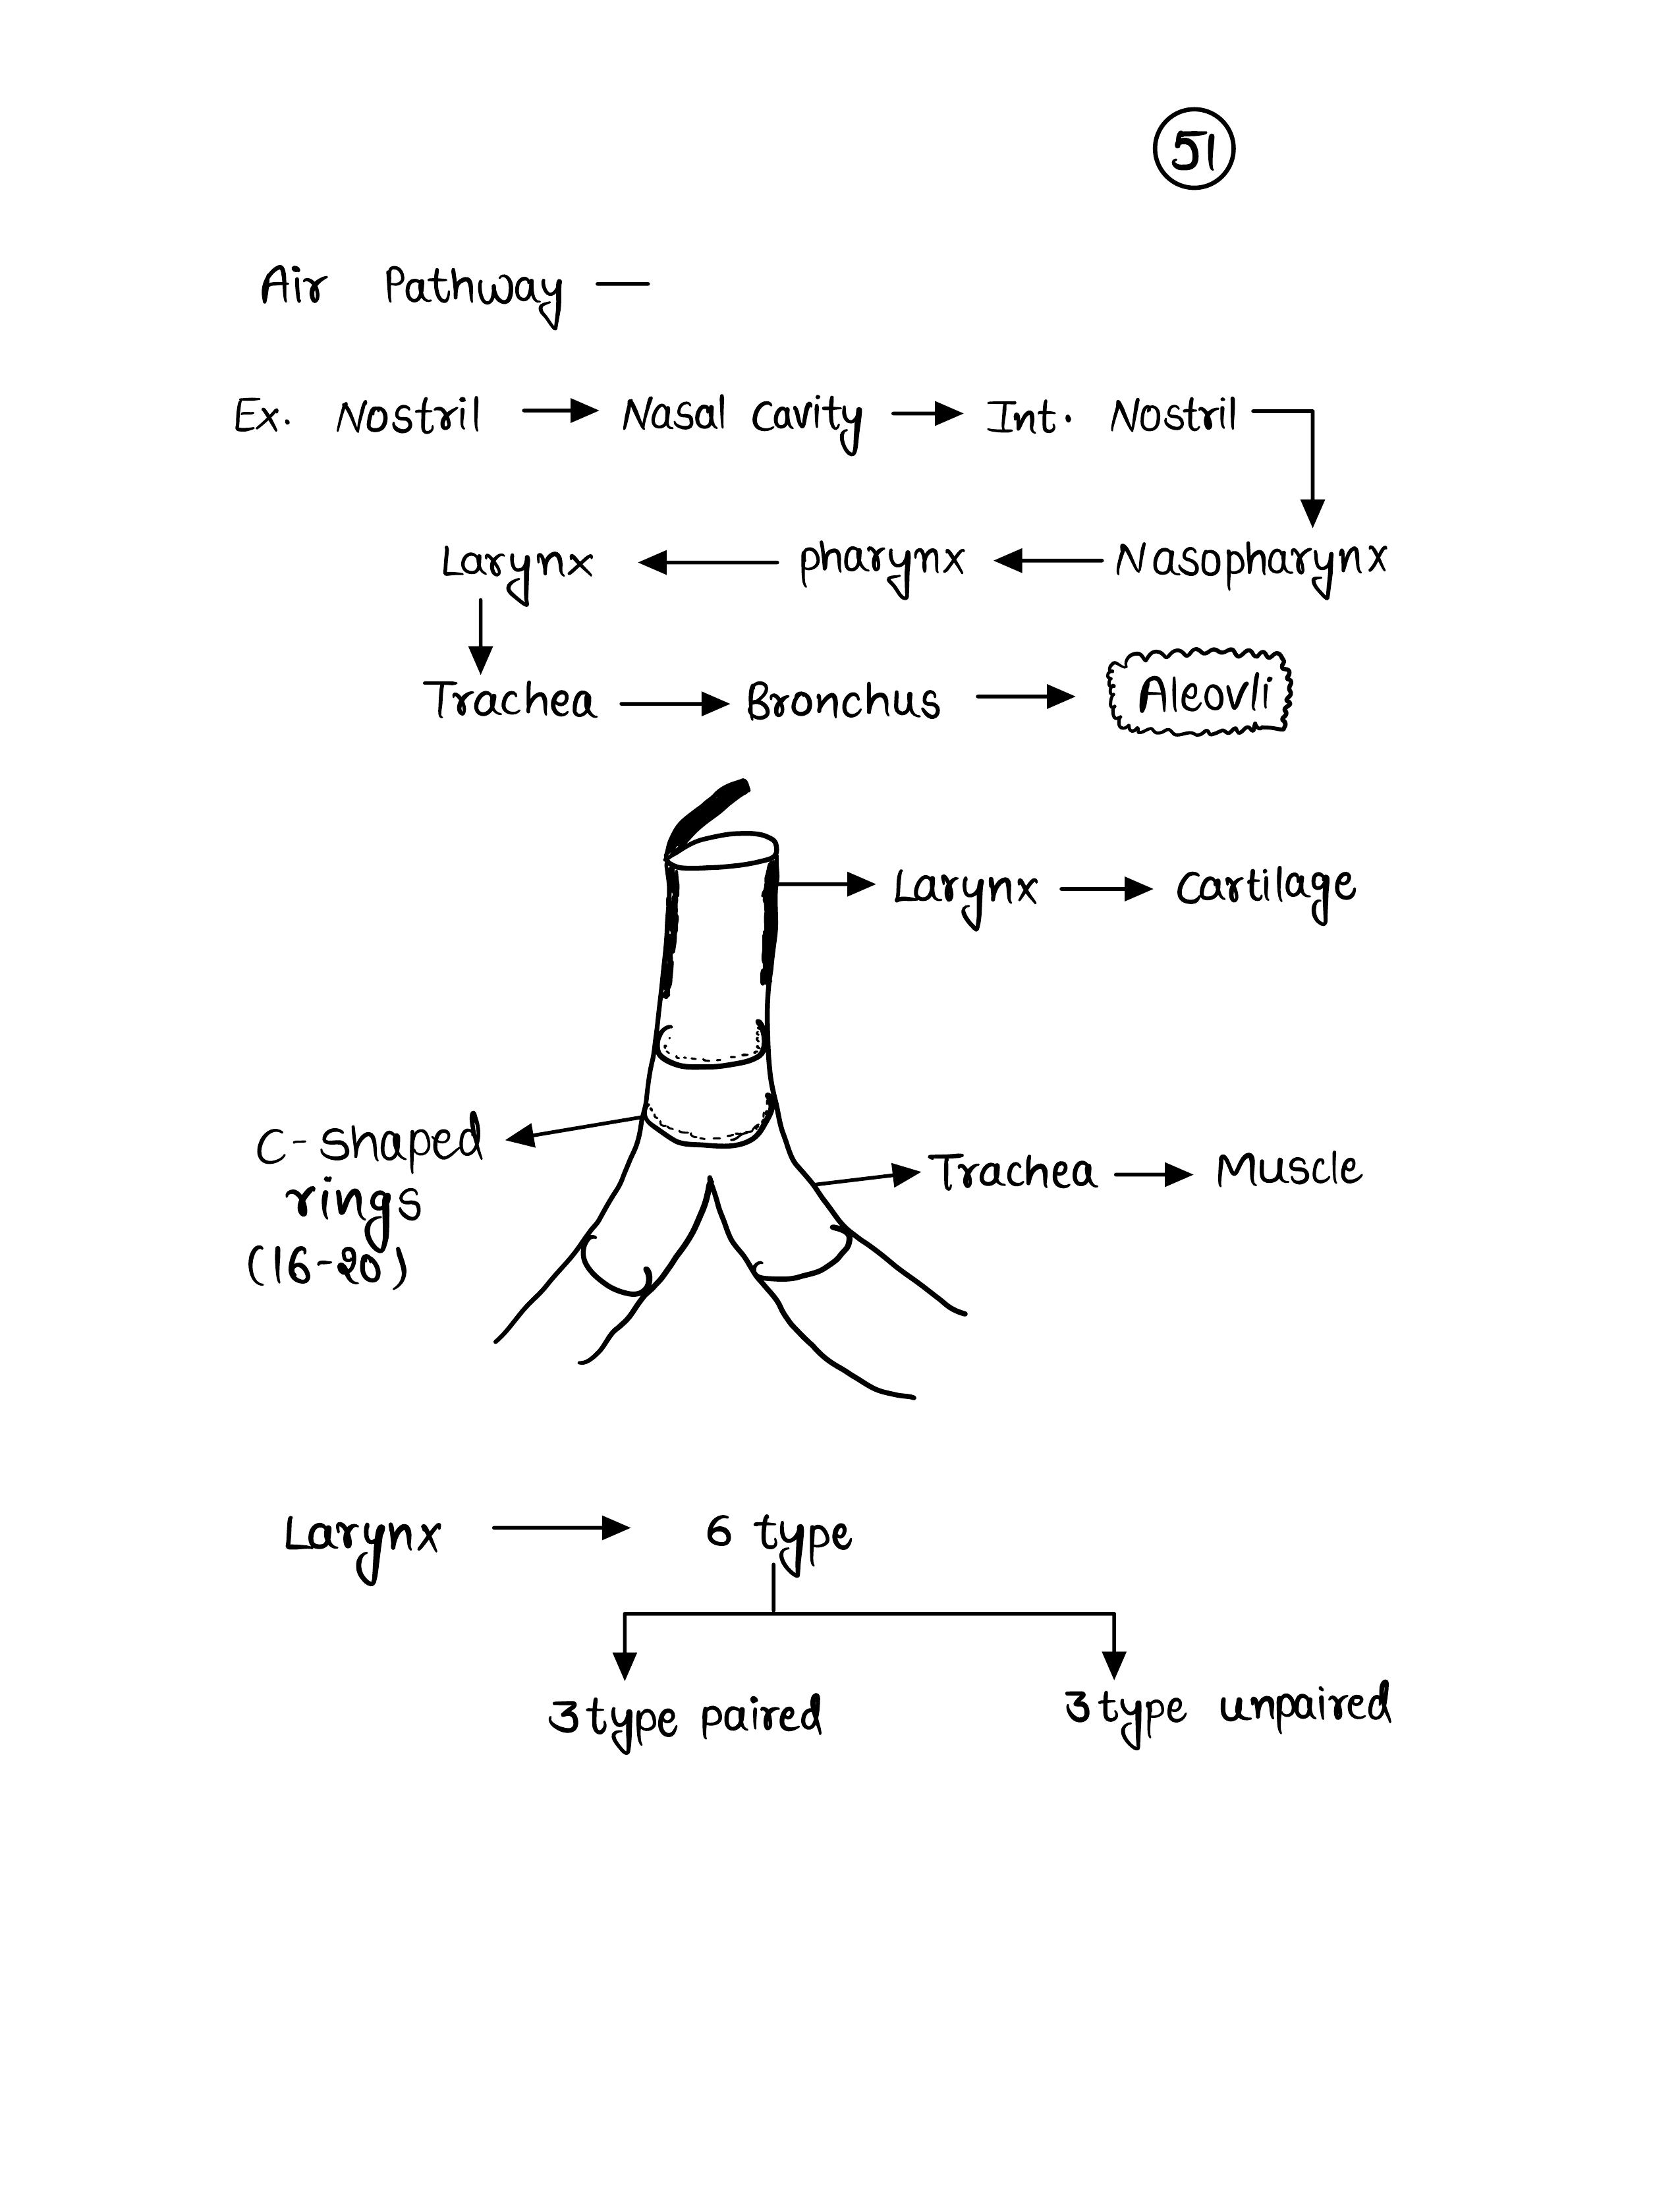 51
Air Pathway —
Ex. Nostril → Nasal Cavity → Int. Nostril
Larynx ← pharynx ← Nasopharynx
Trachea → Bronchus → Aleovli
Larynx → Cartilage
C-shaped
rings
(16-20)
Trachea → Muscle
Larynx → 6 type
3 type paired
3 type unpaired